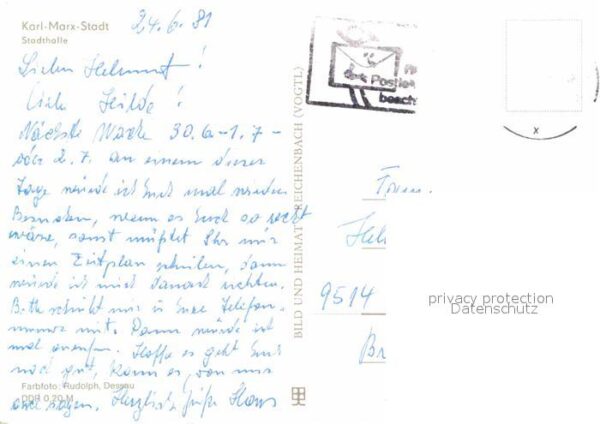 Karl-Marx-Stadt
Stadthalle
24.6.81
Lieber Helmut!
Liebe Hilde!
Nächste Woche 30.6.-1.7.-
oder 2.7. an einem dieser
Tage würde ich Euch mal wieder
Besuchen, wenn es Euch so recht
wäre, sonst müßtet Ihr mir
einen Zeitplan schicken, dann
würde ich mich danach richten.
Bitte schickt mir Eure Telefon-
nummer mit. Dann würde ich
mal anrufen. Hoffe es geht Euch
noch gut, kann es von mir
auch sagen. Herzliche Grüße Hans
Farbfoto: Rudolph, Dessau
DDR 0,20 M
BILD UND HEIMAT REICHENBACH (VOGTL)
Postle
beach
Fam.
Hel
9514
privacy protection
Datenschutz